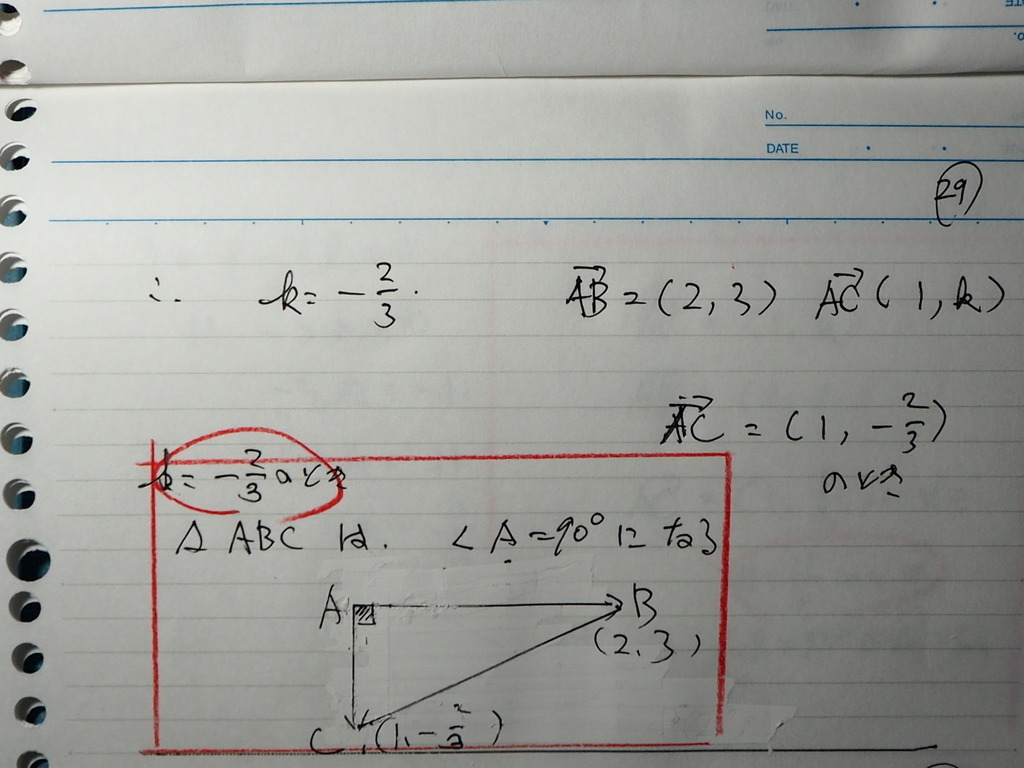 No.
DATE
29
∴ k = -2/3. AB→ = (2, 3) AC→ (1, k)
AC→ = (1, -2/3)
のとき
k = -2/3 のとき
△ABCは. ∠A = 90° になる
A B
(2, 3)
C (1, -2/3)